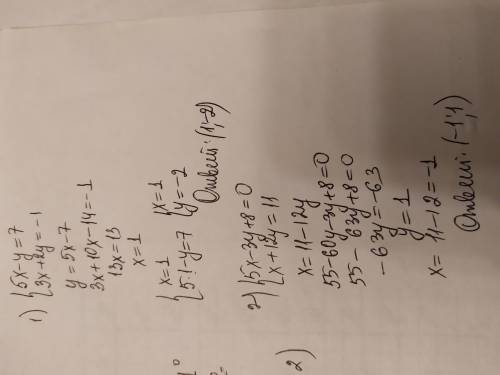 1) { 5x-y=7
3x+2y=-1
y=5x-7
3x+10x-14=-1
13x=13
x=1
{ x=1 { x=1
5·1-y=7 y=-2
Ответ: (1;-2)
2) { 5x-3y+8=0
x+12y=11
x=11-12y
55-60y-3y+8=0
55-63y+8=0
-63y=-63
y=1
x=11-12=-1
Ответ: (-1;1)
2)